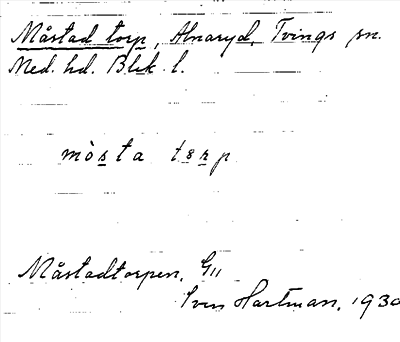 Måstad torp, Alnaryd, Tvings sn.
Med. hd. Blek. l.
mòsta tɜrp
Måstadtorpen. G11
Sven Hartman. 1930